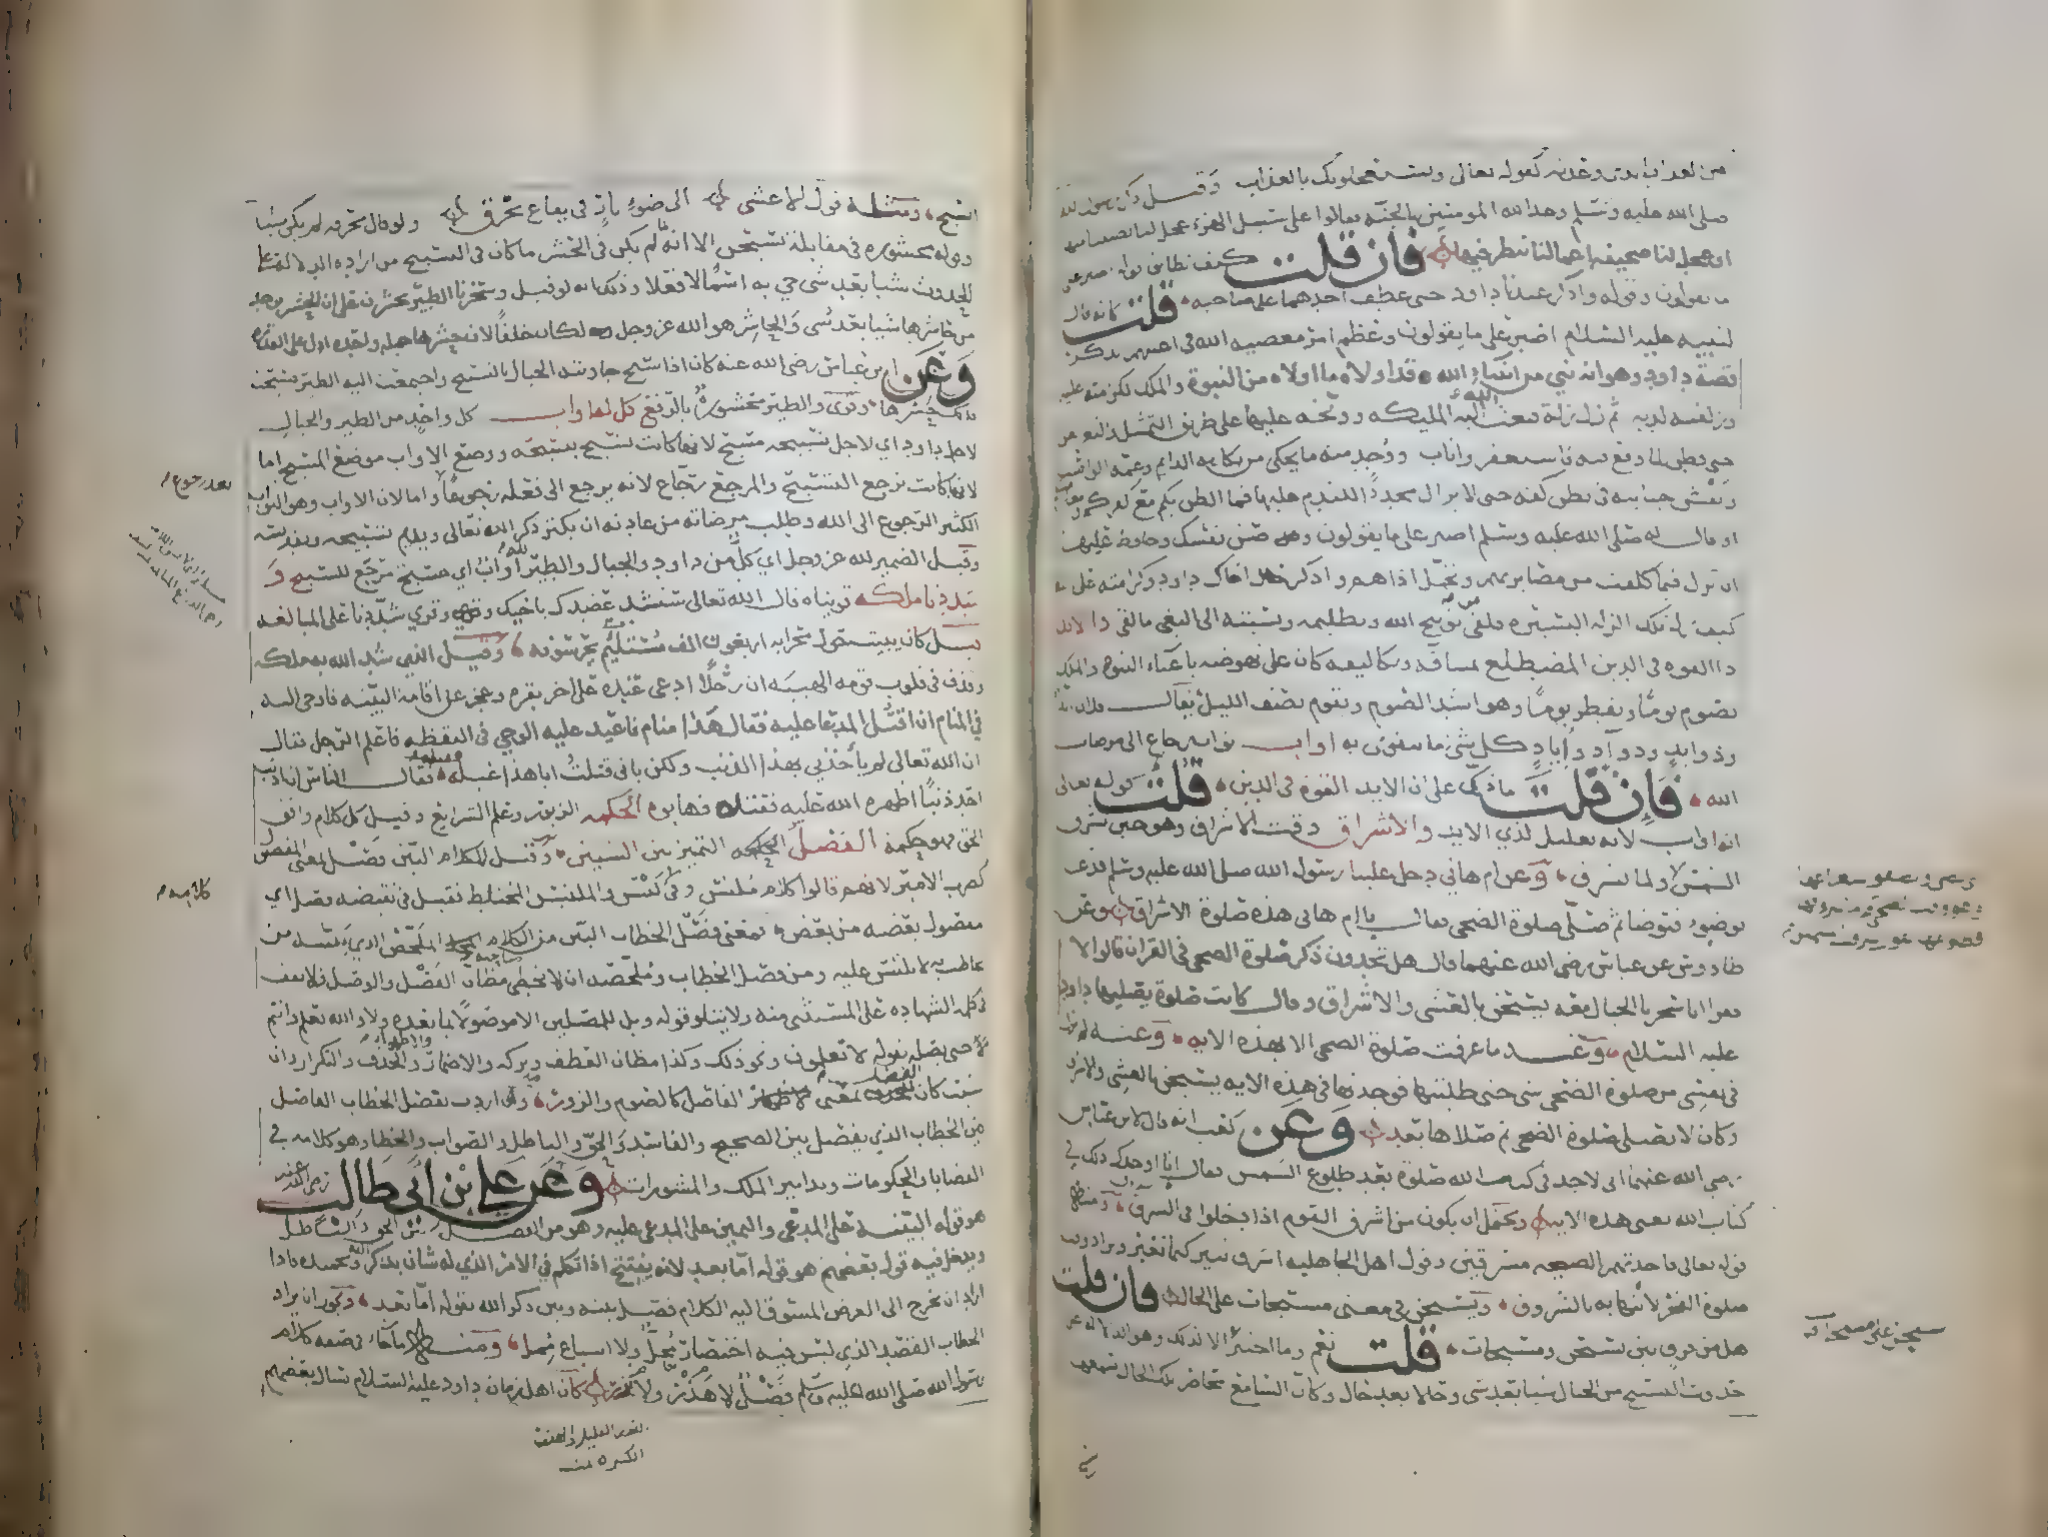 من العذاب الذي وعدته كقوله تعالى ويستعجلونك بالعذاب وقيل ذكر رسول الله
صلى الله عليه وسلم وعد الله المومنين بالجنة فقالوا على سبيل الهزء عجل لنا نصيبنا منها
او عجل لنا صحيفة اعمالنا ننظر فيها فان قلت كيف تطابق قوله اصبر على
ما يقولون وقوله واذكر عبدنا داود حتى عطف احدهما على صاحبه قلت كانه قال
لنبيه عليه السلام اصبر على ما يقولون وعظم امر معصية الله في اعينهم بذكر
قصة داود وهو انه نبي من انبياء الله قد اولاه ما اولاه من النبوة والملك لكرمته عليه
وزلفته لديه ثم زل زلة فبعث اليه المليكة ووبخه عليها على طريق التمثيل والتعريض
حتى فطن لما وقع فيه فاستغفر واناب ووجد منه ما يحكى من بكائه الدايم وغمه الواصب
ونقش جنايته في بطن كفه حتى لا يزال مجددا للندم عليها فما الظن بكم مع كفركم ومعاصيكم
او قال له صلى الله عليه وسلم اصبر على ما يقولون وصن نفسك وحافظ عليها
ان تزل فيما كلفت من مصابرتهم وتحمل اذاهم واذكر اخاك داود وكرامته على
كيف زل تلك الزلة اليسيرة فلقي من توبيخ الله وتظليمه ونسبته الى البغي ما لقي ذا الايد
ذا القوة في الدين المضطلع بمشاقه وتكاليفه كان على نهوضه باعباء النبوة والملك
يصوم يوما ويفطر يوما وهو اشد الصوم ويقوم نصف الليل يقال فلان ايد
وذو ايد وذو آد واياد كل شيء ما يتقوى به اواب تواب رجاع الى مرضات
الله فان قلت ما دلك على ان الايد القوة في الدين قلت قوله تعالى
انه اواب لانه تعليل لذي الايد والاشراق وقت الاشراق وهو حين تشرق
الشمس ولما تشرق وعن ام هاني دخل علينا رسول الله صلى الله عليه وسلم فدعا
بوضوء فتوضا ثم صلى صلوة الضحى وقال يا ام هاني هذه صلوة الاشراق وعن
طاووس عن عباس رضي الله عنهما قال هل تجدون ذكر صلوة الضحى في القران قالوا لا
فقرا انا سخرنا الجبال معه يسبحن بالعشي والاشراق وقال كانت صلوة يصليها داود
عليه السلام وعنه ما عرفت صلوة الضحى الا بهذه الاية وعنه لم يزل
في نفسي من صلوة الضحى شي حتى طلبتها فوجدتها في هذه الاية يسبحن بالعشي والاشراق
وكان لا يصلي صلوة الضحى ثم صلاها بعد وعن كعب انه قال لابن عباس
رضي الله عنهما اني لا اجد في كتب الله صلوة بعد طلوع الشمس فقال انا اوجدك ذلك في
كتاب الله يعني هذه الاية ويحتمل ان يكون من اشرق القوم اذا دخلوا في الشروق ومنه
قوله تعالى فاخذتهم الصيحة مشرقين وقول اهل الجاهلية اشرق ثبير كيما نغير ويراد وقت
صلوة الفجر لانتهائه بالشروق ويسبحن في معنى مسبحات على الحال فان قلت
هل من فرق بين يسبحن ومسبحات قلت نعم وما اختير الا لذلك وهو الدلالة على
حدوث التسبيح من الجبال شيا بعد شي وحالا بعد حال وكان السامع محاضر تلك الحال يسمعها
تسبح ومثله قول الاعشى الى ضوء نار في يفاع تحرق ولو قال محرقة لم يكن شيئا
وقوله محشورة في مقابلة يسبحن الا انه لما لم يكن في الحشر ما كان في التسبيح من ارادة الدلالة على
الحدوث شيا بعد شي جي به اسما لا فعلا وذلك انه لو قيل وسخرنا الطير يحشرن على ان الحشر يوجد
من حاشرها شيا بعد شي والحاشر هو الله عز وجل لكان خلفا لان حشرها جملة واحدة ادل على القدرة
وعن ابن عباس رضي الله عنه كان اذا سبح جاوبته الجبال بالتسبيح واجتمعت اليه الطير فسبحت
فذلك حشرها وقرئ والطير محشورة بالرفع كل له اواب كل واحد من الطير والجبال
لاجل داود اي لاجل تسبيحه مسبح لانها كانت تسبح بتسبيحه ووضع الاواب موضع المسبح اما
لانها كانت ترجع التسبيح والمرجع رجاع لانه يرجع الى فعله رجوعا واما لان الاواب وهو التواب
الكثير الرجوع الى الله وطلب مرضاته من عادته ان يكثر ذكر الله تعالى ويديم تسبيحه وتقديسه
وقيل الضمير لله عز وجل اي كل من داود والجبال والطير لله اواب اي مسبح مرجع للتسبيح و
شددنا ملكه قويناه قال الله تعالى سنشد عضدك باخيك وقرئ شددنا على المبالغة
قيل كان يبيت حول محرابه اربعون الف مستلئم يحرسونه وقيل الذي شد الله به ملكه
وقذف في قلوب قومه الهيبة ان رجلا ادعى عنده على اخر بقرة وعجز عن اقامة البينة فاوحى اليه
في المنام ان اقتل المدعا عليه فقال هذا منام فاعيد عليه الوحي في اليقظة فاعلم الرجل فقال
ان الله تعالى لم ياخذني بهذا الذنب ولكن باني قتلت ابا هذا غيلة فقال الناس ان اذنب
احد ذنبا اظهره الله عليه فقتله فهابوه الحكمة الزبور وعلم الشرايع وقيل كل كلام وافق
الحق فهو حكمة الفصل التمييز بين الشيئين وقيل للكلام البين فصل بمعنى المفصول
كضرب الامير لانهم قالوا كلام ملتبس وفي كلامه لبس والملتبس المختلط فقيل في نقيضه فصل اي
مفصول بعضه من بعض فمعنى فصل الخطاب البين من الكلام الملخص الذي يتبينه من
يخاطب به لا يلتبس عليه ومن فصل الخطاب وملخصه ان لا يخطي صاحبه مظان الفصل والوصل فلا يقف
في كلمة الشهادة على المستثنى منه ولا يتلو قوله ويل للمصلين الا موصولا بما بعده ولا والله يعلم وانتم
لا حتى يصله بقوله لا تعلمون ونحو ذلك وكذا مظان العطف وتركه والاضمار والاظهار والحذف والتكرار وان
شئت كان الفصل بمعنى الفاصل كالصوم والزور وان اردت بفصل الخطاب الفاصل
من الخطاب الذي يفصل بين الصحيح والفاسد والحق والباطل والصواب والخطا وهو كلامه في
القضايا والحكومات وتدابير الملك والمشورات وعن علي بن ابي طالب رضي الله عنه
هو قوله البينة على المدعي واليمين على المدعى عليه وهو من الفصل بين الحق والباطل
ويدخل فيه قول بعضهم هو قوله اما بعد لانه يفتتح اذا تكلم في الامر الذي له شان بذكر الله وتحميده فاذا
اراد ان يخرج الى الغرض المسوق اليه الكلام فصل بينه وبين ذكر الله بقوله اما بعد ويجوز ان يراد
الخطاب القصد الذي ليس فيه اختصار مخل ولا اشباع ممل ومنه ما جاء في صفة كلام
رسول الله صلى الله عليه وسلم فصل لا نذر ولا هذر كان اهل زمان داود عليه السلام يسال بعضهم
بعد رجوع
كلامه
النذر القليل والهذر
الكثير منه